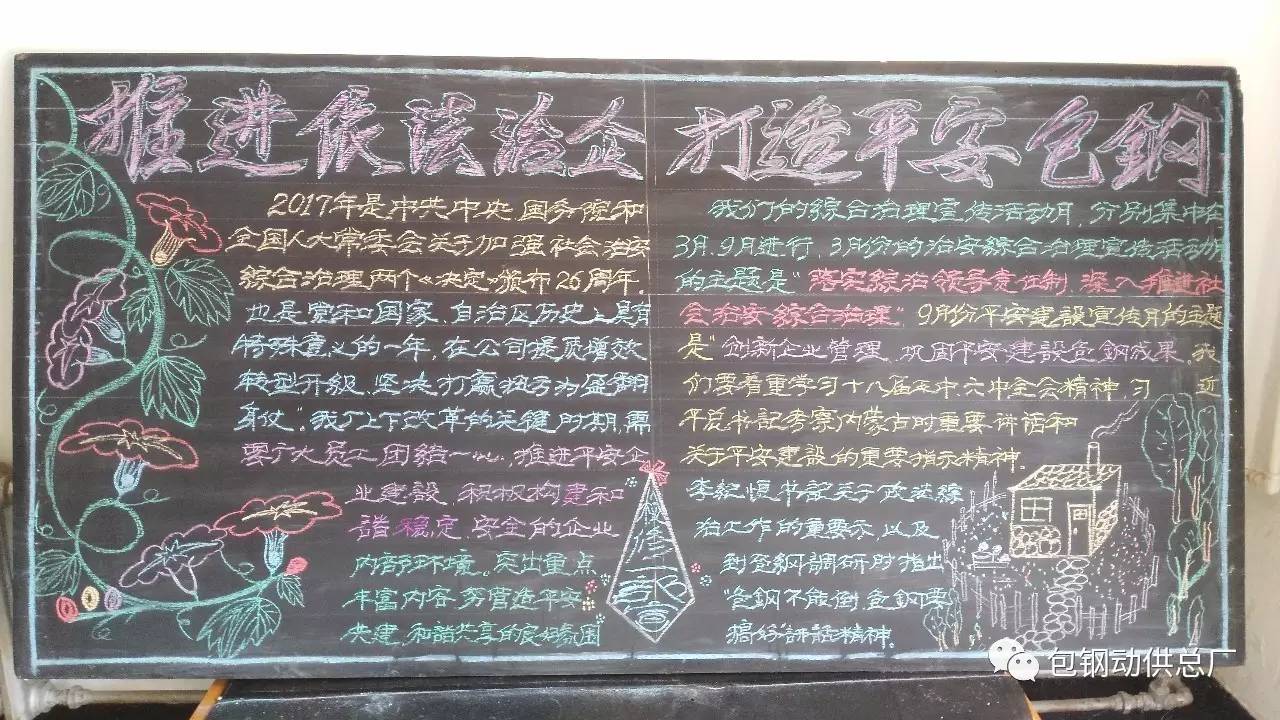 推进依法治企 打造平安包钢
2017年是中共中央、国务院和
全国人大常委会关于加强社会治安
綜合治理两个《决定》颁布26周年，
也是党和国家、自治区历史上具有
特殊意义的一年，在公司提质增效
转型升级、坚决打赢扭亏为盈翻
身仗，我厂上下改革的关键时期，需
要广大员工团結一心，推进平安企
业建設，积极构建和
諧、稳定、安全的企业
内部环境。突出重点
丰富内容，夯营造平安
共建、和諧共享的良好氛围
检修一部宣
我们的綜合治理宣传活动月，分别集中在
3月、9月进行，3月份的治安綜合治理宣传活动月
的主题是“落实綜治领导责任制，深入推进社
会治安綜合治理”9月份平安建設宣传月的主题
是“创新企业管理，巩固平安建設包鋼成果，我
们要着重学习十八届五中、六中全会精神，习 近
平总书記考察内蒙古时重要讲话和
关于平安建設的重要指示精神。
李紀恒书記关于政法綜
治工作的重要示，以及
到包鋼調研时指出
“包鋼不能倒，包鋼要
搞好”讲話精神。
包钢动供总厂